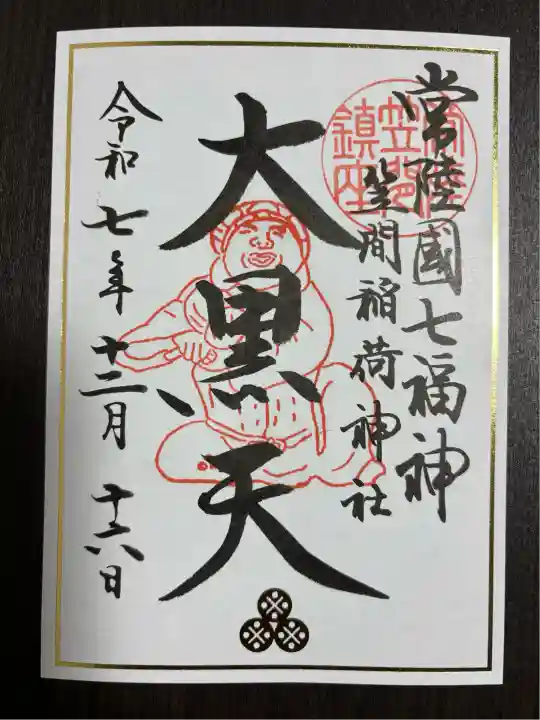 常陸國七福神
笠間稲荷神社
大黒天
令和七年十二月十六日